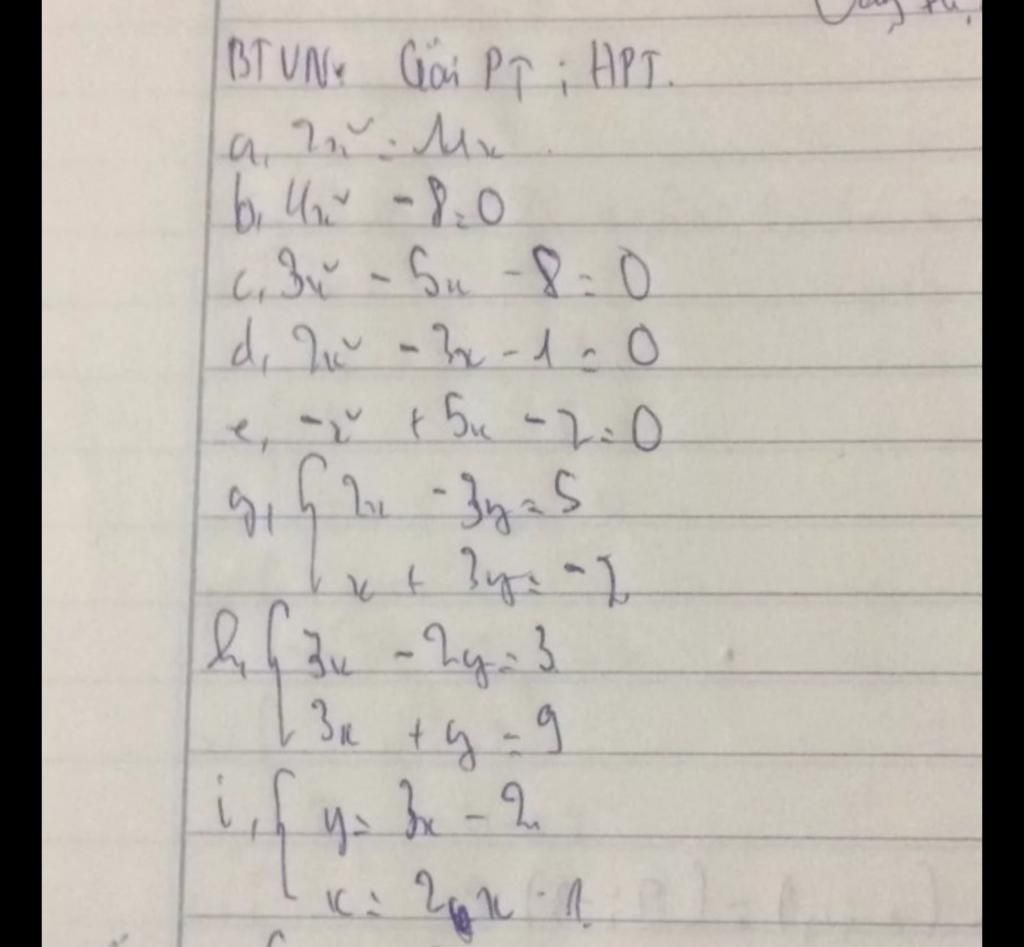 BTVN: Giải PT; HPT.
a, 2x² = 11x
b, 4x² - 8 = 0
c, 3x² - 5x - 8 = 0
d, 2x² - 3x - 1 = 0
e, -x² + 5x - 2 = 0
g, { 2x - 3y = 5
x + 3y = -2
h, { 3x - 2y = 3
3x + y = 9
i, { y = 3x - 2
x = 2x - 1